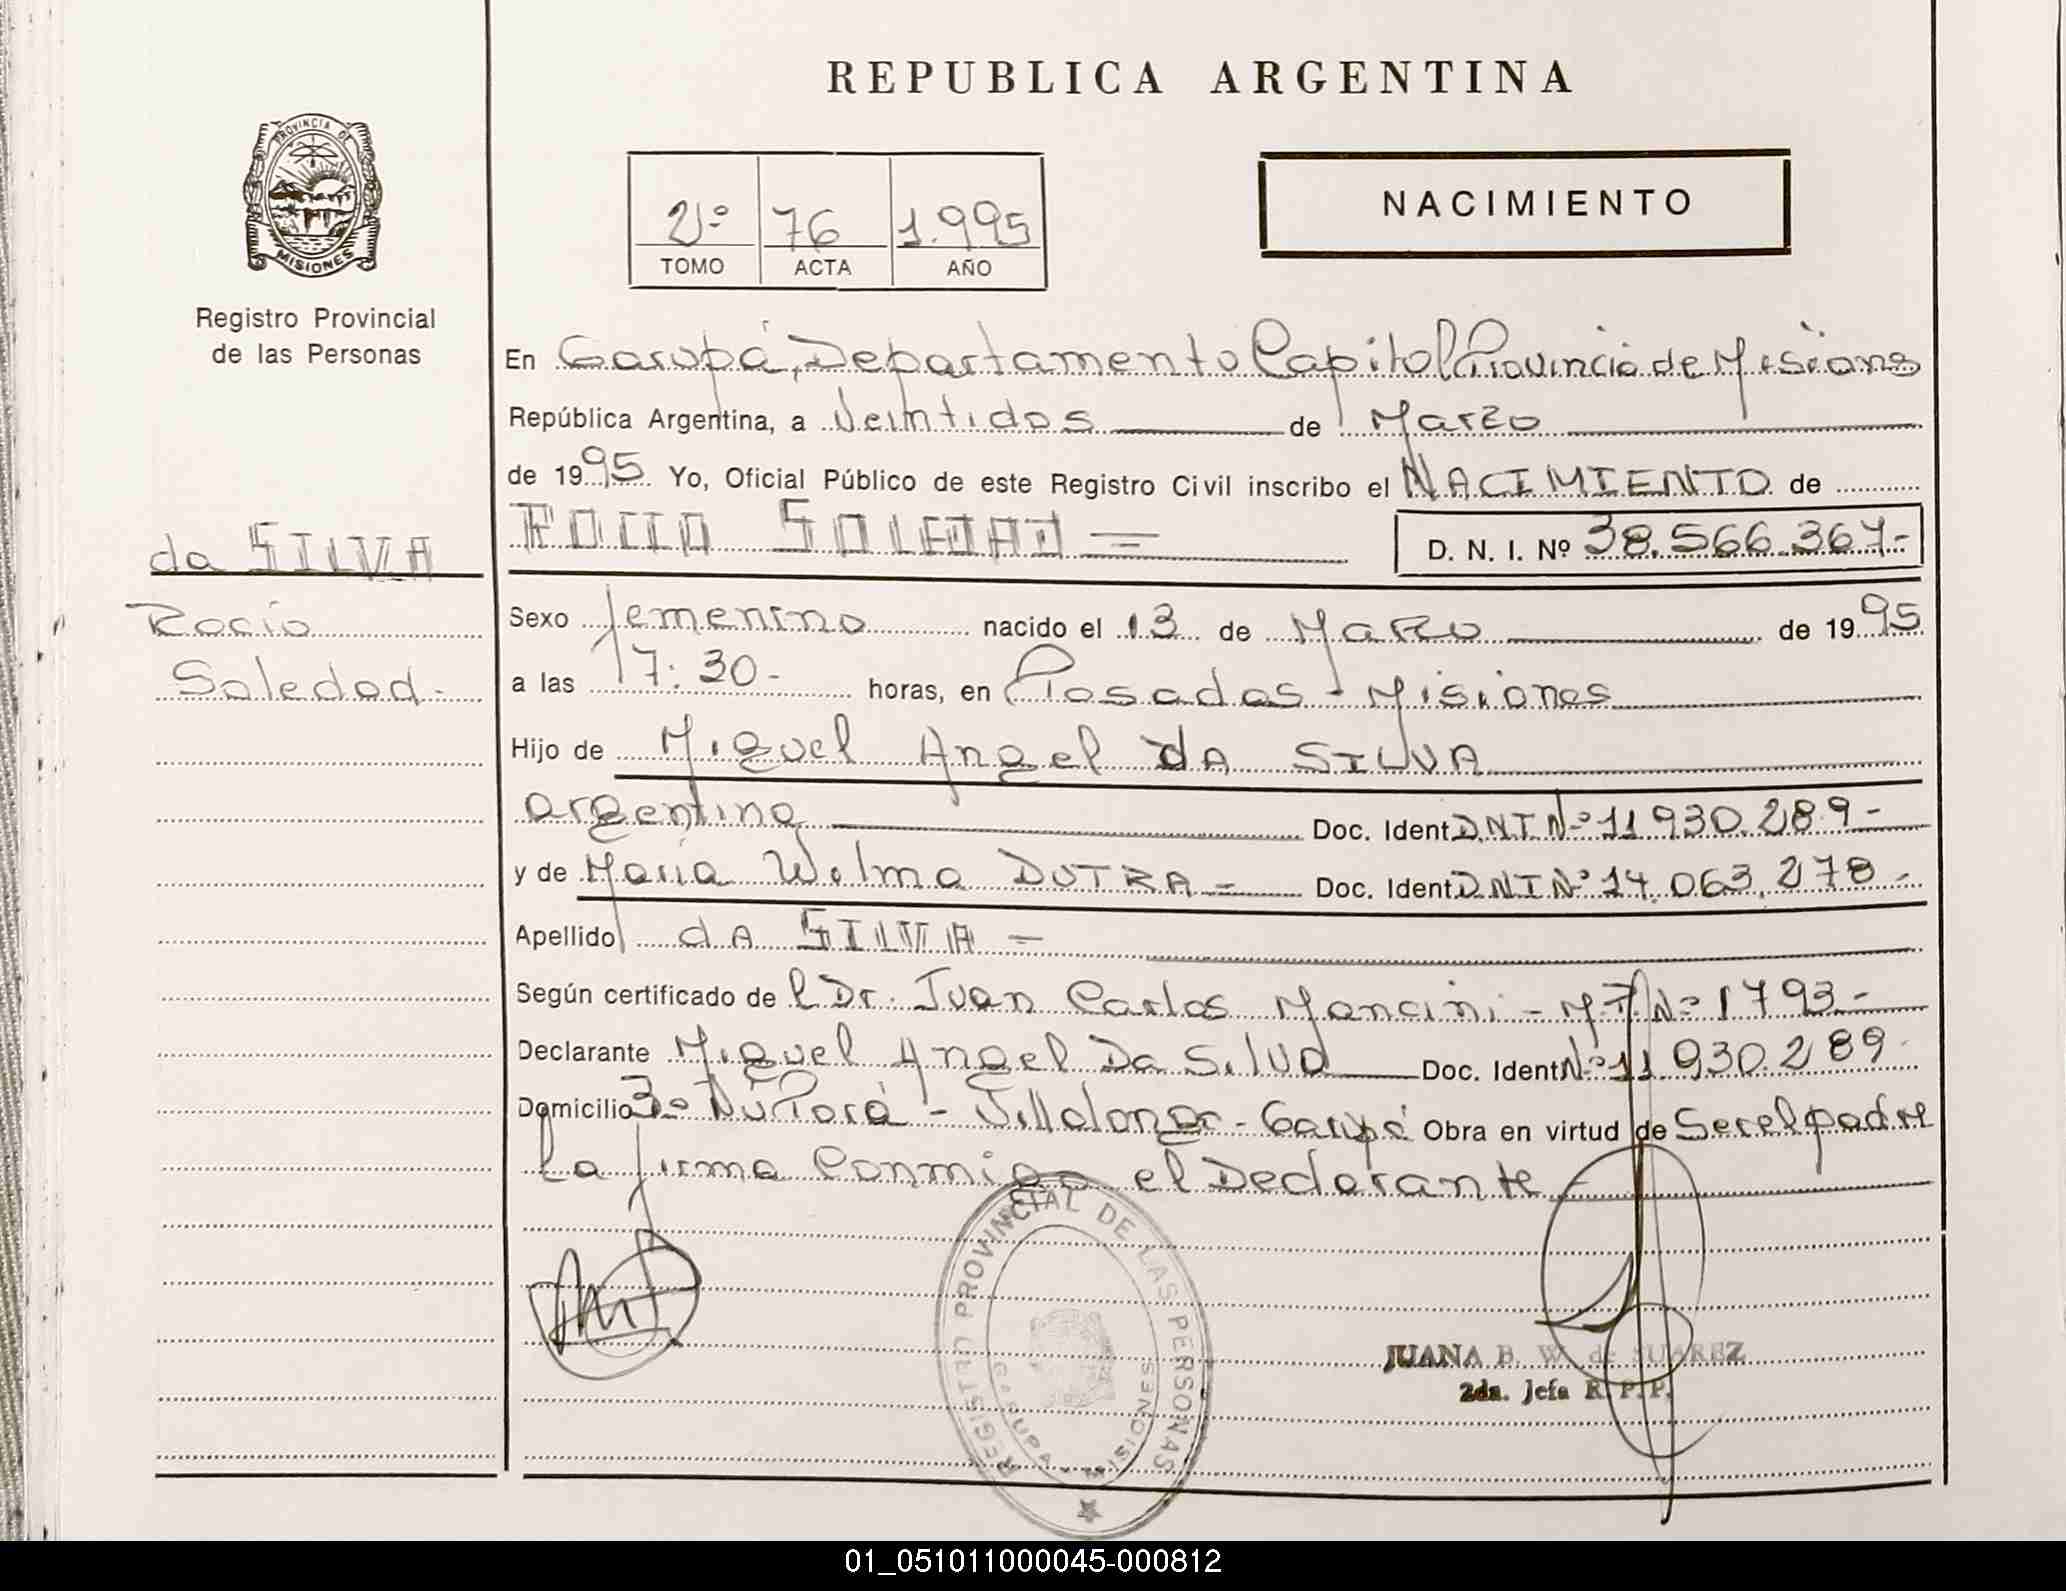 REPUBLICA ARGENTINA
PROVINCIA DE
MISIONES
Registro Provincial
de las Personas
2º 76 1.995
TOMO ACTA AÑO
NACIMIENTO
En Garupá, Departamento Capital Provincia de Misiones
República Argentina, a Veintidos de Marzo
de 1995 Yo, Oficial Público de este Registro Civil inscribo el NACIMIENTO de
da SILVA
ROCIO SOLEDAD =
D. N. I. Nº 38.566.367-
Rocío
Soledad-
Sexo femenino nacido el 13 de Marzo de 1995
a las 17:30- horas, en Posadas - Misiones
Hijo de Miguel Angel DA SILVA
argentina Doc. Ident DNI Nº 11.930.289-
y de María Wilma DUTRA = Doc. Ident DNI Nº 14.063.278-
Apellido dA SILVA =
Según certificado de l Dr. Juan Carlos Mancini - M.P. Nº 1793-
Declarante Miguel Angel Da Silva Doc. Ident Nº 11.930.289-
Domicilio Bº Ñu Porá - Villalonga - Garupá Obra en virtud de Ser el padre
La firma Conmigo el Declarante
REGISTRO PROVINCIAL DE LAS PERSONAS
GARUPA - MISIONES
JUANA B. W. de SUAREZ
2da. Jefa R. P. P.
01_051011000045-000812